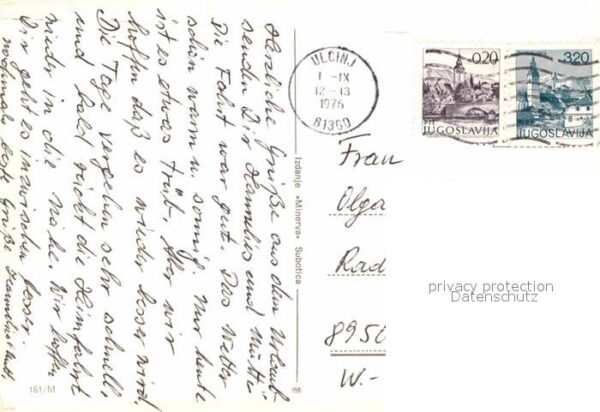 Herzliche Grüße aus dem Urlaub
senden Dir Hannelies und Mutti
Die Fahrt war gut. Das Wetter
schön warm u. sonnig. Nur heute
ist es etwas trüb. Aber wir
hoffen daß es wieder besser wird.
Die Tage vergehen sehr schnell,
und bald rückt die Heimfahrt
wieder in die Nähe. Wir hoffen
Dir geht es inzwischen besser.
nochmals beste Grüße
161/M
Izdanje »Minerva« Subotica
ULCINJ
1-IX
12-13
1975
81360
0,20
JUGOSLAVIJA
3,20
JUGOSLAVIJA
Frau
Olga
Rad
895
W.-
privacy protection
Datenschutz